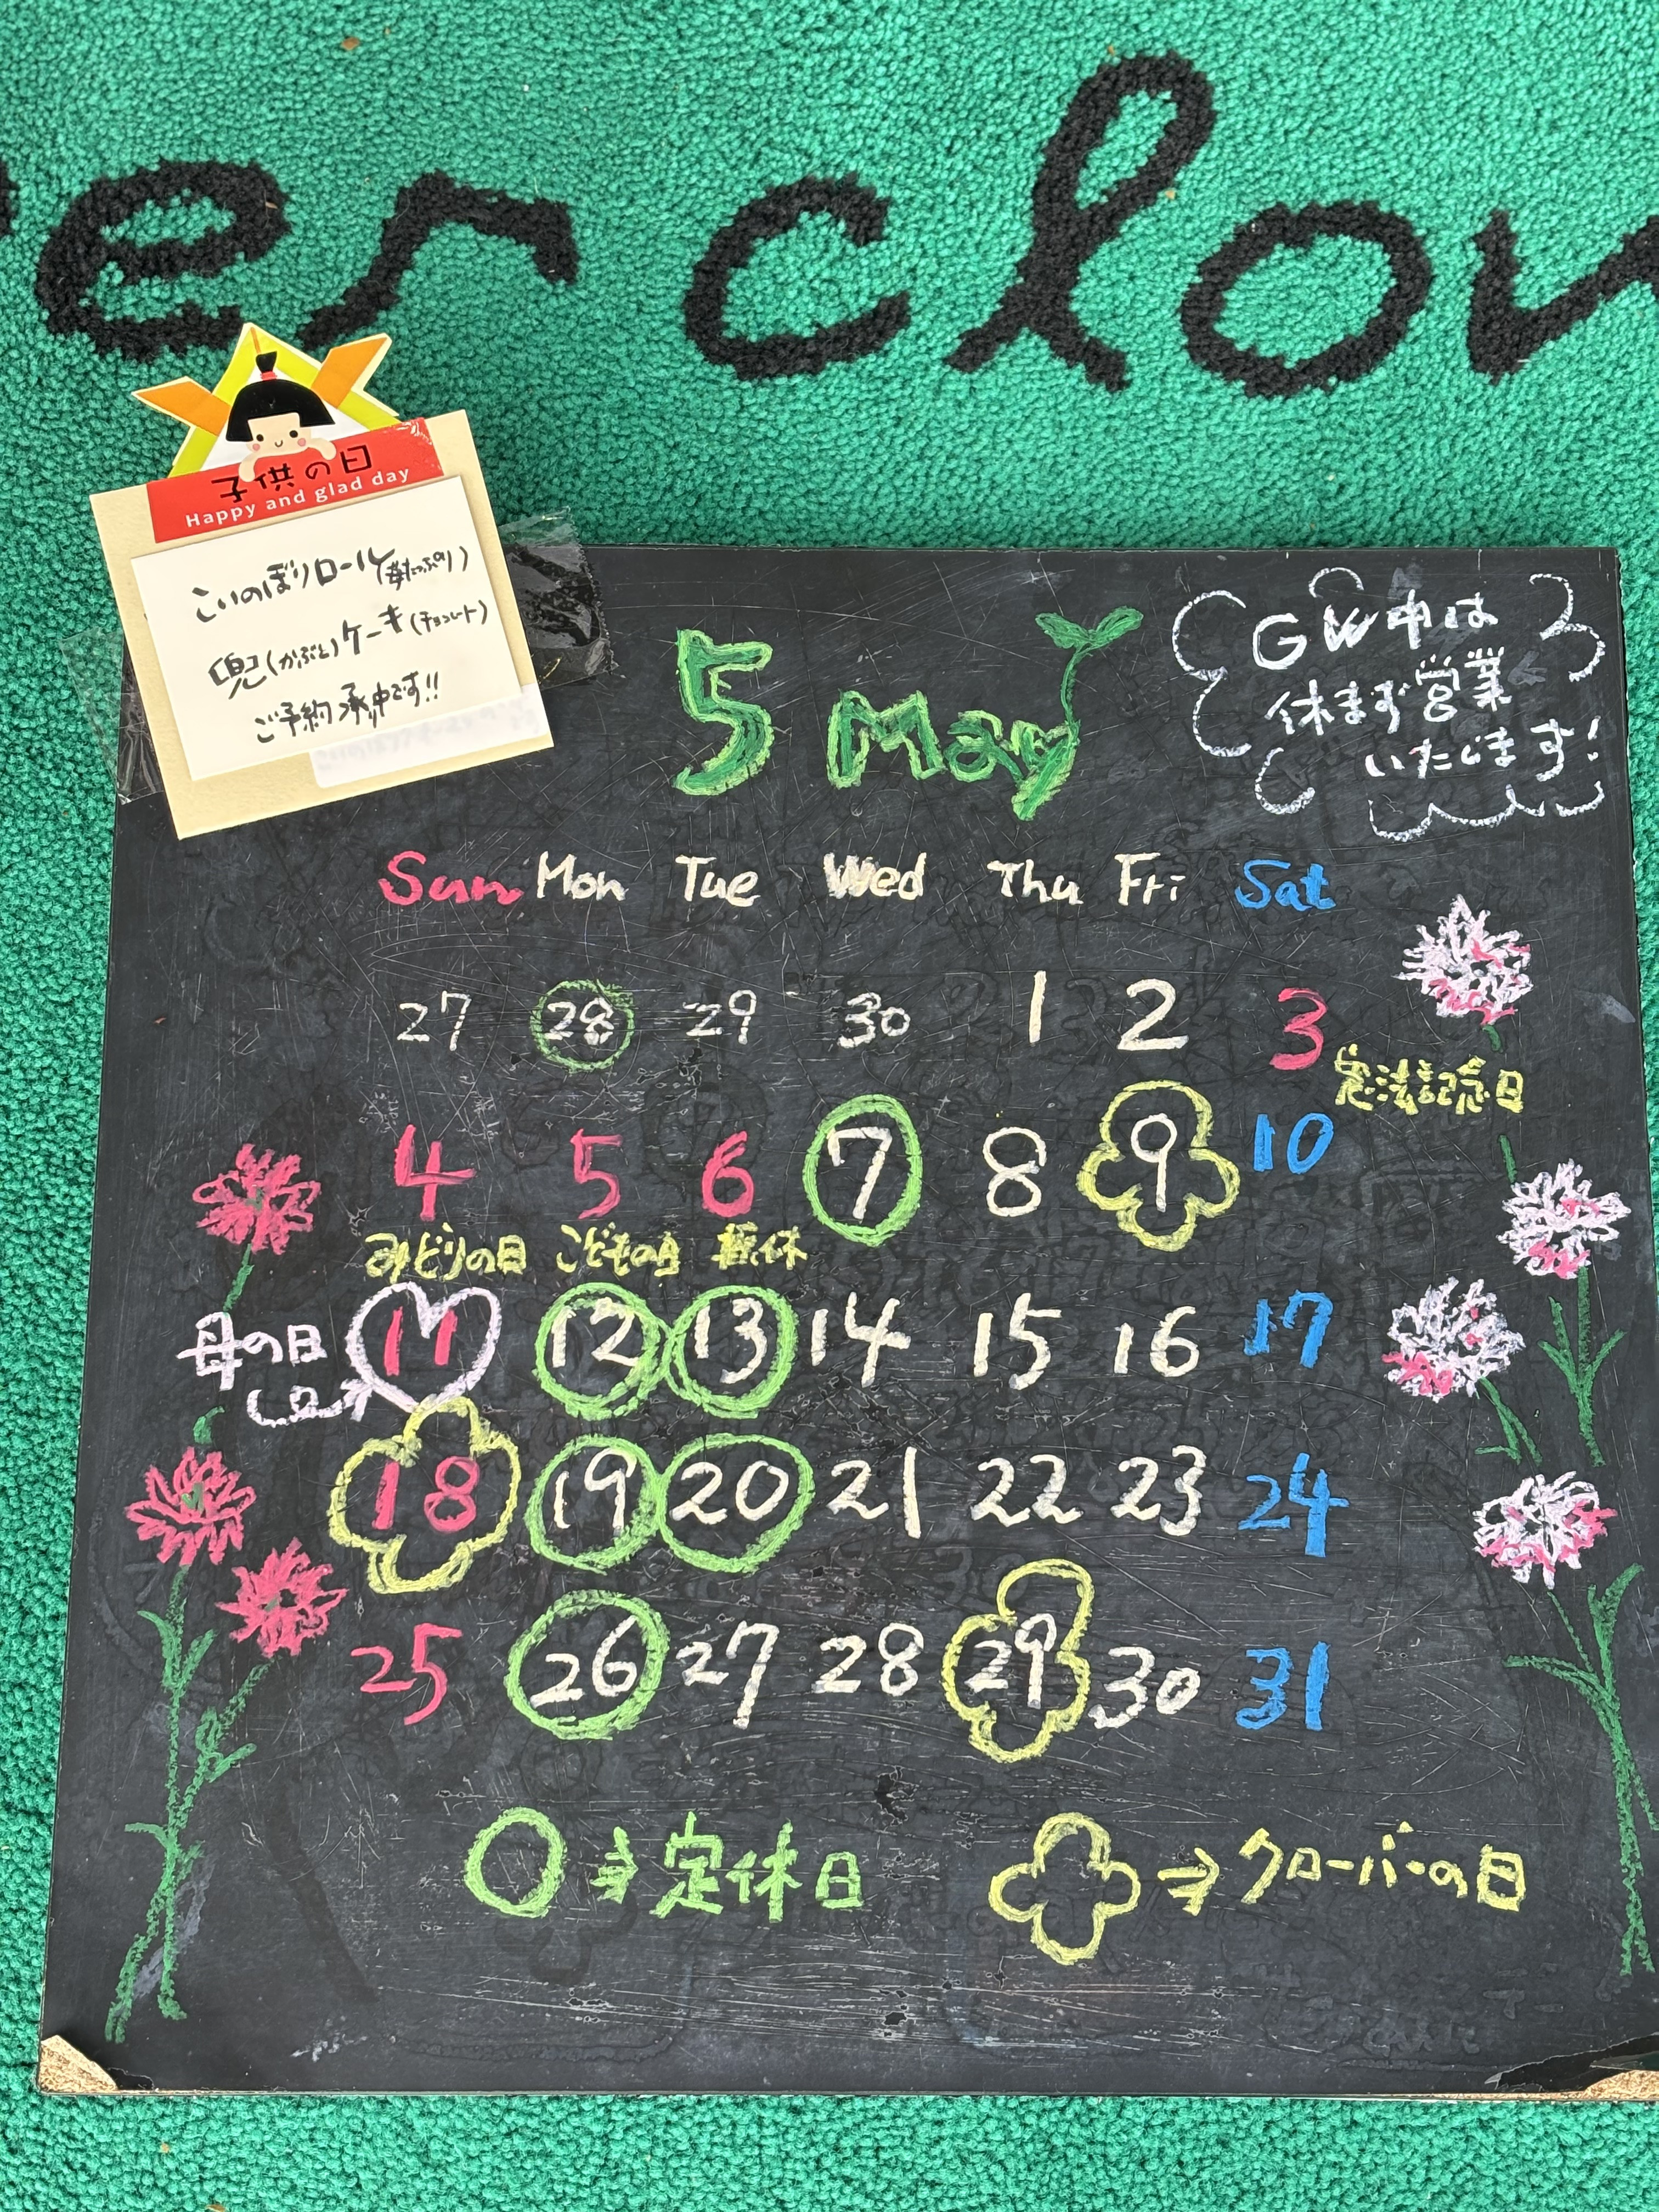 er clov
子供の日
Happy and glad day
こいのぼりロール(苺たっぷり)
兜(かぶと)ケーキ(チョコレート)
ご予約承り中です!!
5 May
GW中は
休まず営業
いたします!
Sun Mon Tue Wed Thu Fri Sat
27 28 29 30 1 2 3
憲法記念日
4 5 6 7 8 9 10
みどりの日 こどもの日 振休
母の日
11 12 13 14 15 16 17
18 19 20 21 22 23 24
25 26 27 28 29 30 31
→定休日
→クローバーの日